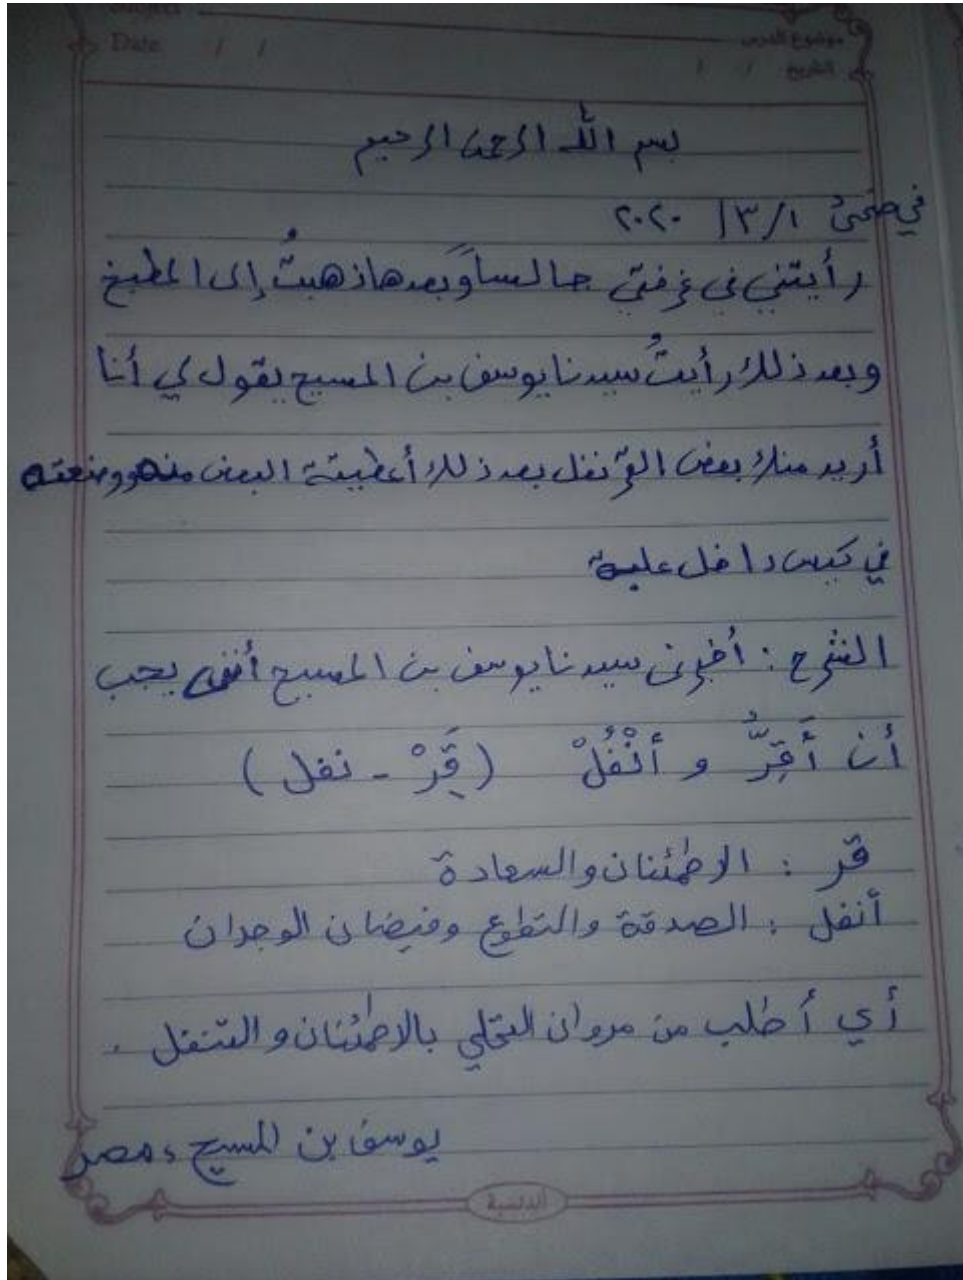 Date / /
موضوع الدرس
التاريخ / /
بسم الله الرحمن الرحيم
في ضحى ١/٣/٢٠٢٠
رأيتني في غرفتي جالساً وَبعدها ذهبتُ إلى المطبخ
وبعد ذلك رأيتُ سيدنا يوسف بن المسيح يقول لي أنا
أريد منك بعض القرنفل بعد ذلك أعطيته البعض منه ووضعته
في كيس داخل علبة
الشرح : أخبرني سيدنا يوسف بن المسيح أنني يجب
أن أَقِرُّ و أنْفُلْ (قَِرْ - نفل)
قر : الاطمئنان والسعادة
أنفل : الصدقة والتطوع وفيضان الوجدان
أي أطلب من مروان التحلي بالاطمئنان و التنفل .
يوسف بن المسيح ، مصر